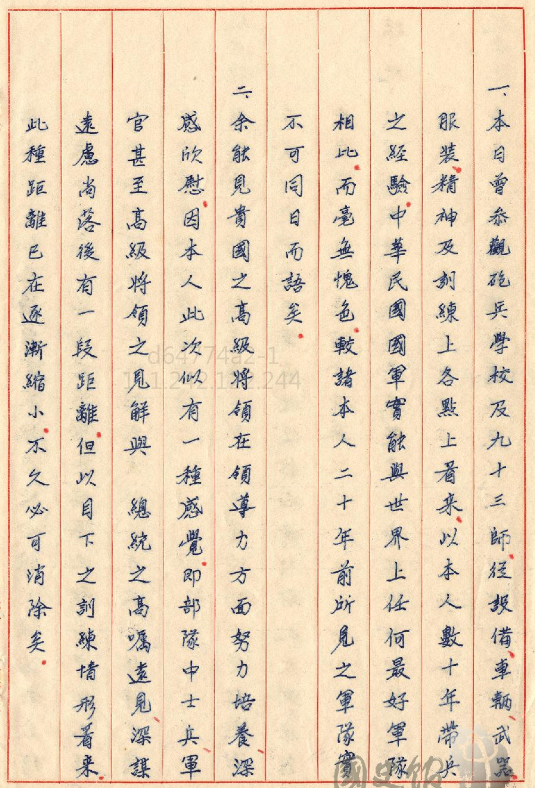 一、本日曾參觀砲兵學校及九十三師從設備車輛武器
服裝精神及訓練上各點上看来以本人數十年帶兵
之經驗中華民國國軍實能與世界上任何最好軍隊
相比而毫無愧色較諸本人二十年前所見之軍隊實
不可同日而語矣
二、余能見貴國之高級將領在領導力方面努力培養深
感欣慰因本人此次似有一種感覺即部隊中士兵軍
官甚至高級將領之見解與 總統之高矚遠見深謀
遠慮尚落後有一段距離但以目下之訓練情形看来
此種距離已在逐漸縮小不久必可消除矣
d64774a2-1
國史館